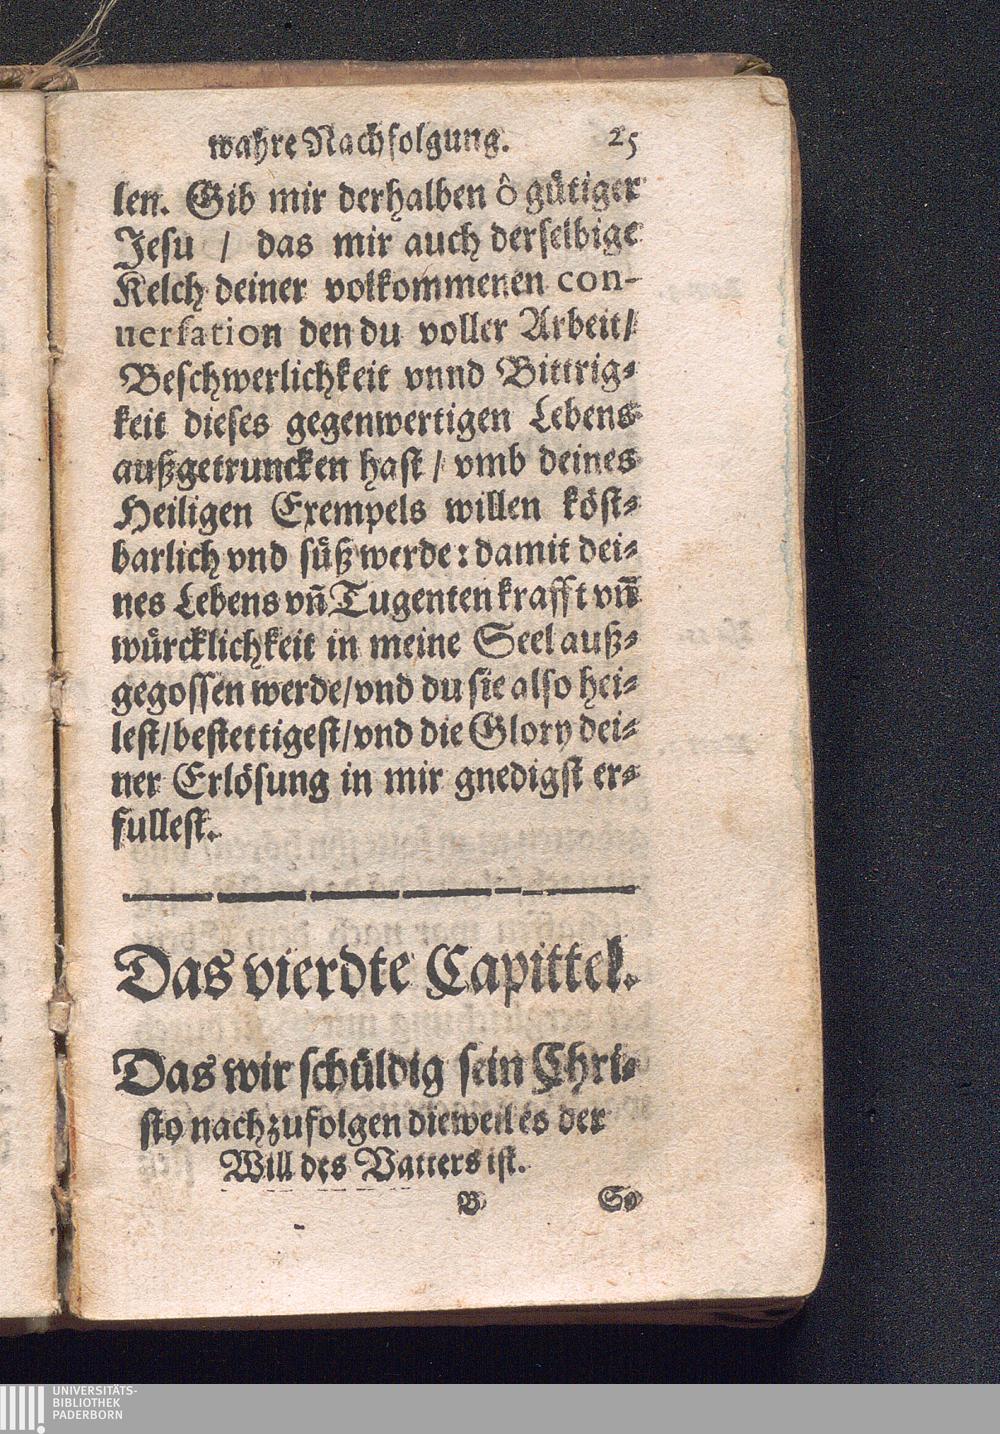 wahre Nachfolgung. 25
len. Gib mir derhalben ô gütiger
Jesu / das mir auch derselbige
Kelch deiner volkommenen con-
uersation den du voller Arbeit/
Beschwerlichkeit vnnd Bittrig-
keit dieses gegenwertigen Lebens
außgetruncken hast / vmb deines
Heiligen Exempels willen köst-
barlich vnd süß werde: damit dei-
nes Lebens vñ Tugenten krafft vñ
würcklichkeit in meine Seel auß-
gegossen werde/vnd du sie also hei-
lest/bestettigest/vnd die Glory dei-
ner Erlösung in mir gnedigst er-
fullest.
Das vierdte Capittel.
Das wir schüldig sein Chri-
sto nachzufolgen dieweil es der
Will des Vatters ist.
B So
UNIVERSITÄTS-
BIBLIOTHEK
PADERBORN